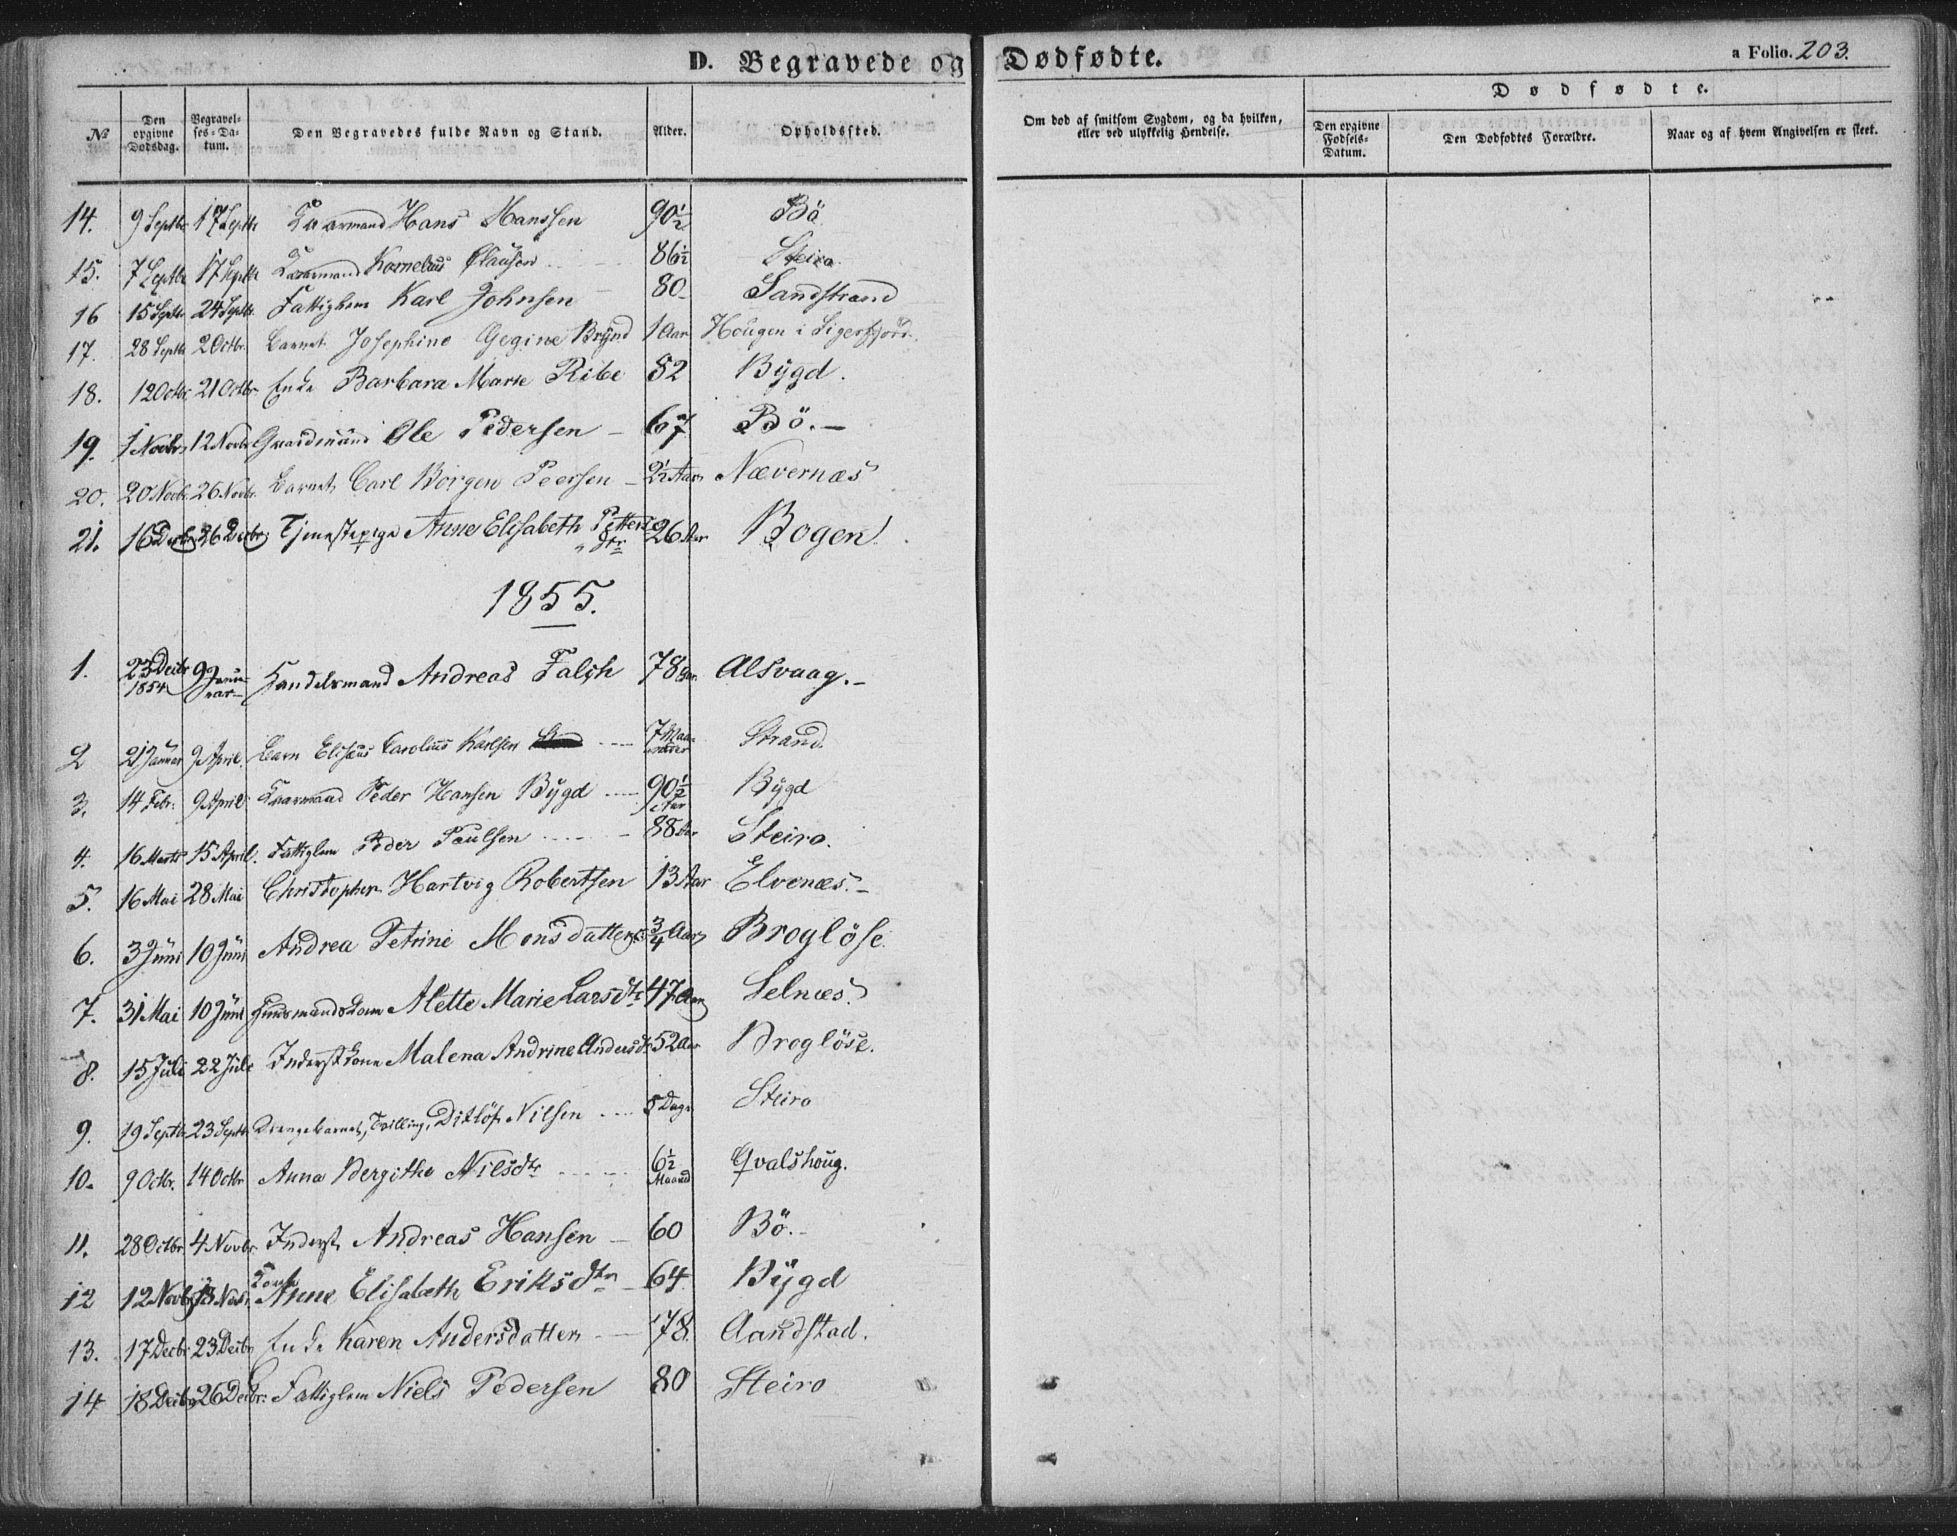 D. Begravede og Dødfødte.
a Folio. 203.
Dødfødte.
No
Den opgivne Dødsdag.
Begravelses-Datum.
Den Begravedes fulde Navn og Stand.
Alder.
Opholdssted.
Om død af smitsom Sygdom, og da hvilken, eller ved ulykkelig Hendelse.
Den opgivne Fødsels-Datum.
Den Dødfødtes Forældre.
Naar og af hvem Angivelsen er skeet.
14. 9 Septbr 17 Septbr Kaarmand Hans Hanssen 90½ Bö
15. 7 Septbr 17 Septbr Kaarmand Kornelius Olausen 86½ Steiro
16 15 Septbr 24 Septbr. Fattiglem Karl Johnsen 80 Sandstrand
17. 28 Septbr 2 Octbr. Barnet Josephine Gegine Brynd 1 Aar Hougen i Sigerfjord.
18. 12 Octbr. 21 Octbr. Enke Barbara Marie Ribe 82 Bÿgd.
19. 1 Novbr. 12 Novbr Gaardmand Ole Pedersen 67 Bö.
20. 20 Novbr. 26 Novbr. Barnet Carl Börgen Peersen 2½ Aar Nævernæs
21. 16 Decbr. 26 Decbr. Tjenestepige Anne Elisabeth Petters Dtr 26 Aar Bogen
1855.
1. 23 Decbr 1854 9 Januar Handelsmand Andreas Falch 78 Aar. Alsvaag.
2 21 Januar 9 April. Barn Elisæus Carolius Karlsen 7 Maaneder Strand.
3. 14 Febr. 9 April Kaarmand Peder Hansen Bÿgd 90½ Aar Bÿgd
4. 16 Marts 15 April. Fattiglem Peder Paulsen 88 Aar Steiro.
5. 16 Mai 28 Mai Christopher Hartvig Robertsen 13 Aar Elvenæs.
6. 3 Jüni 10 Jüni Andrea Petrine Monsdatter ¾ Aar Broglöse.
7. 31 Mai 10 Jüni Huusmandskone Alette Marie Larsdtr 47 Aar Selnæs.
8. 15 Juli 22 Juli Inderstkone Malena Andrine Andersdtr 52 Aar Broglöse.
9. 19 Septbr 23 Septbr Drengebarnet, Tvilling, Ditlöf Nilsen 5 Dage Steiro
10. 9 Octbr. 14 Octbr Anna Bergithe Nilsdtr 6½ Maaned Qvalshoug.
11. 28 Octbr. 4 Novbr. Inderst Andreas Hansen 60 Bö.
12 12 Novbr 18 Nov. Kone Anne Elisabeth Eriksdtr 64 Bÿgd
13. 17 Decbr. 23 Decbr Enke Karen Andersdatter 78. Aandstad.
14 18 Decbr 26 Decbr. Fattiglem Niels Pedersen 80 Steiro